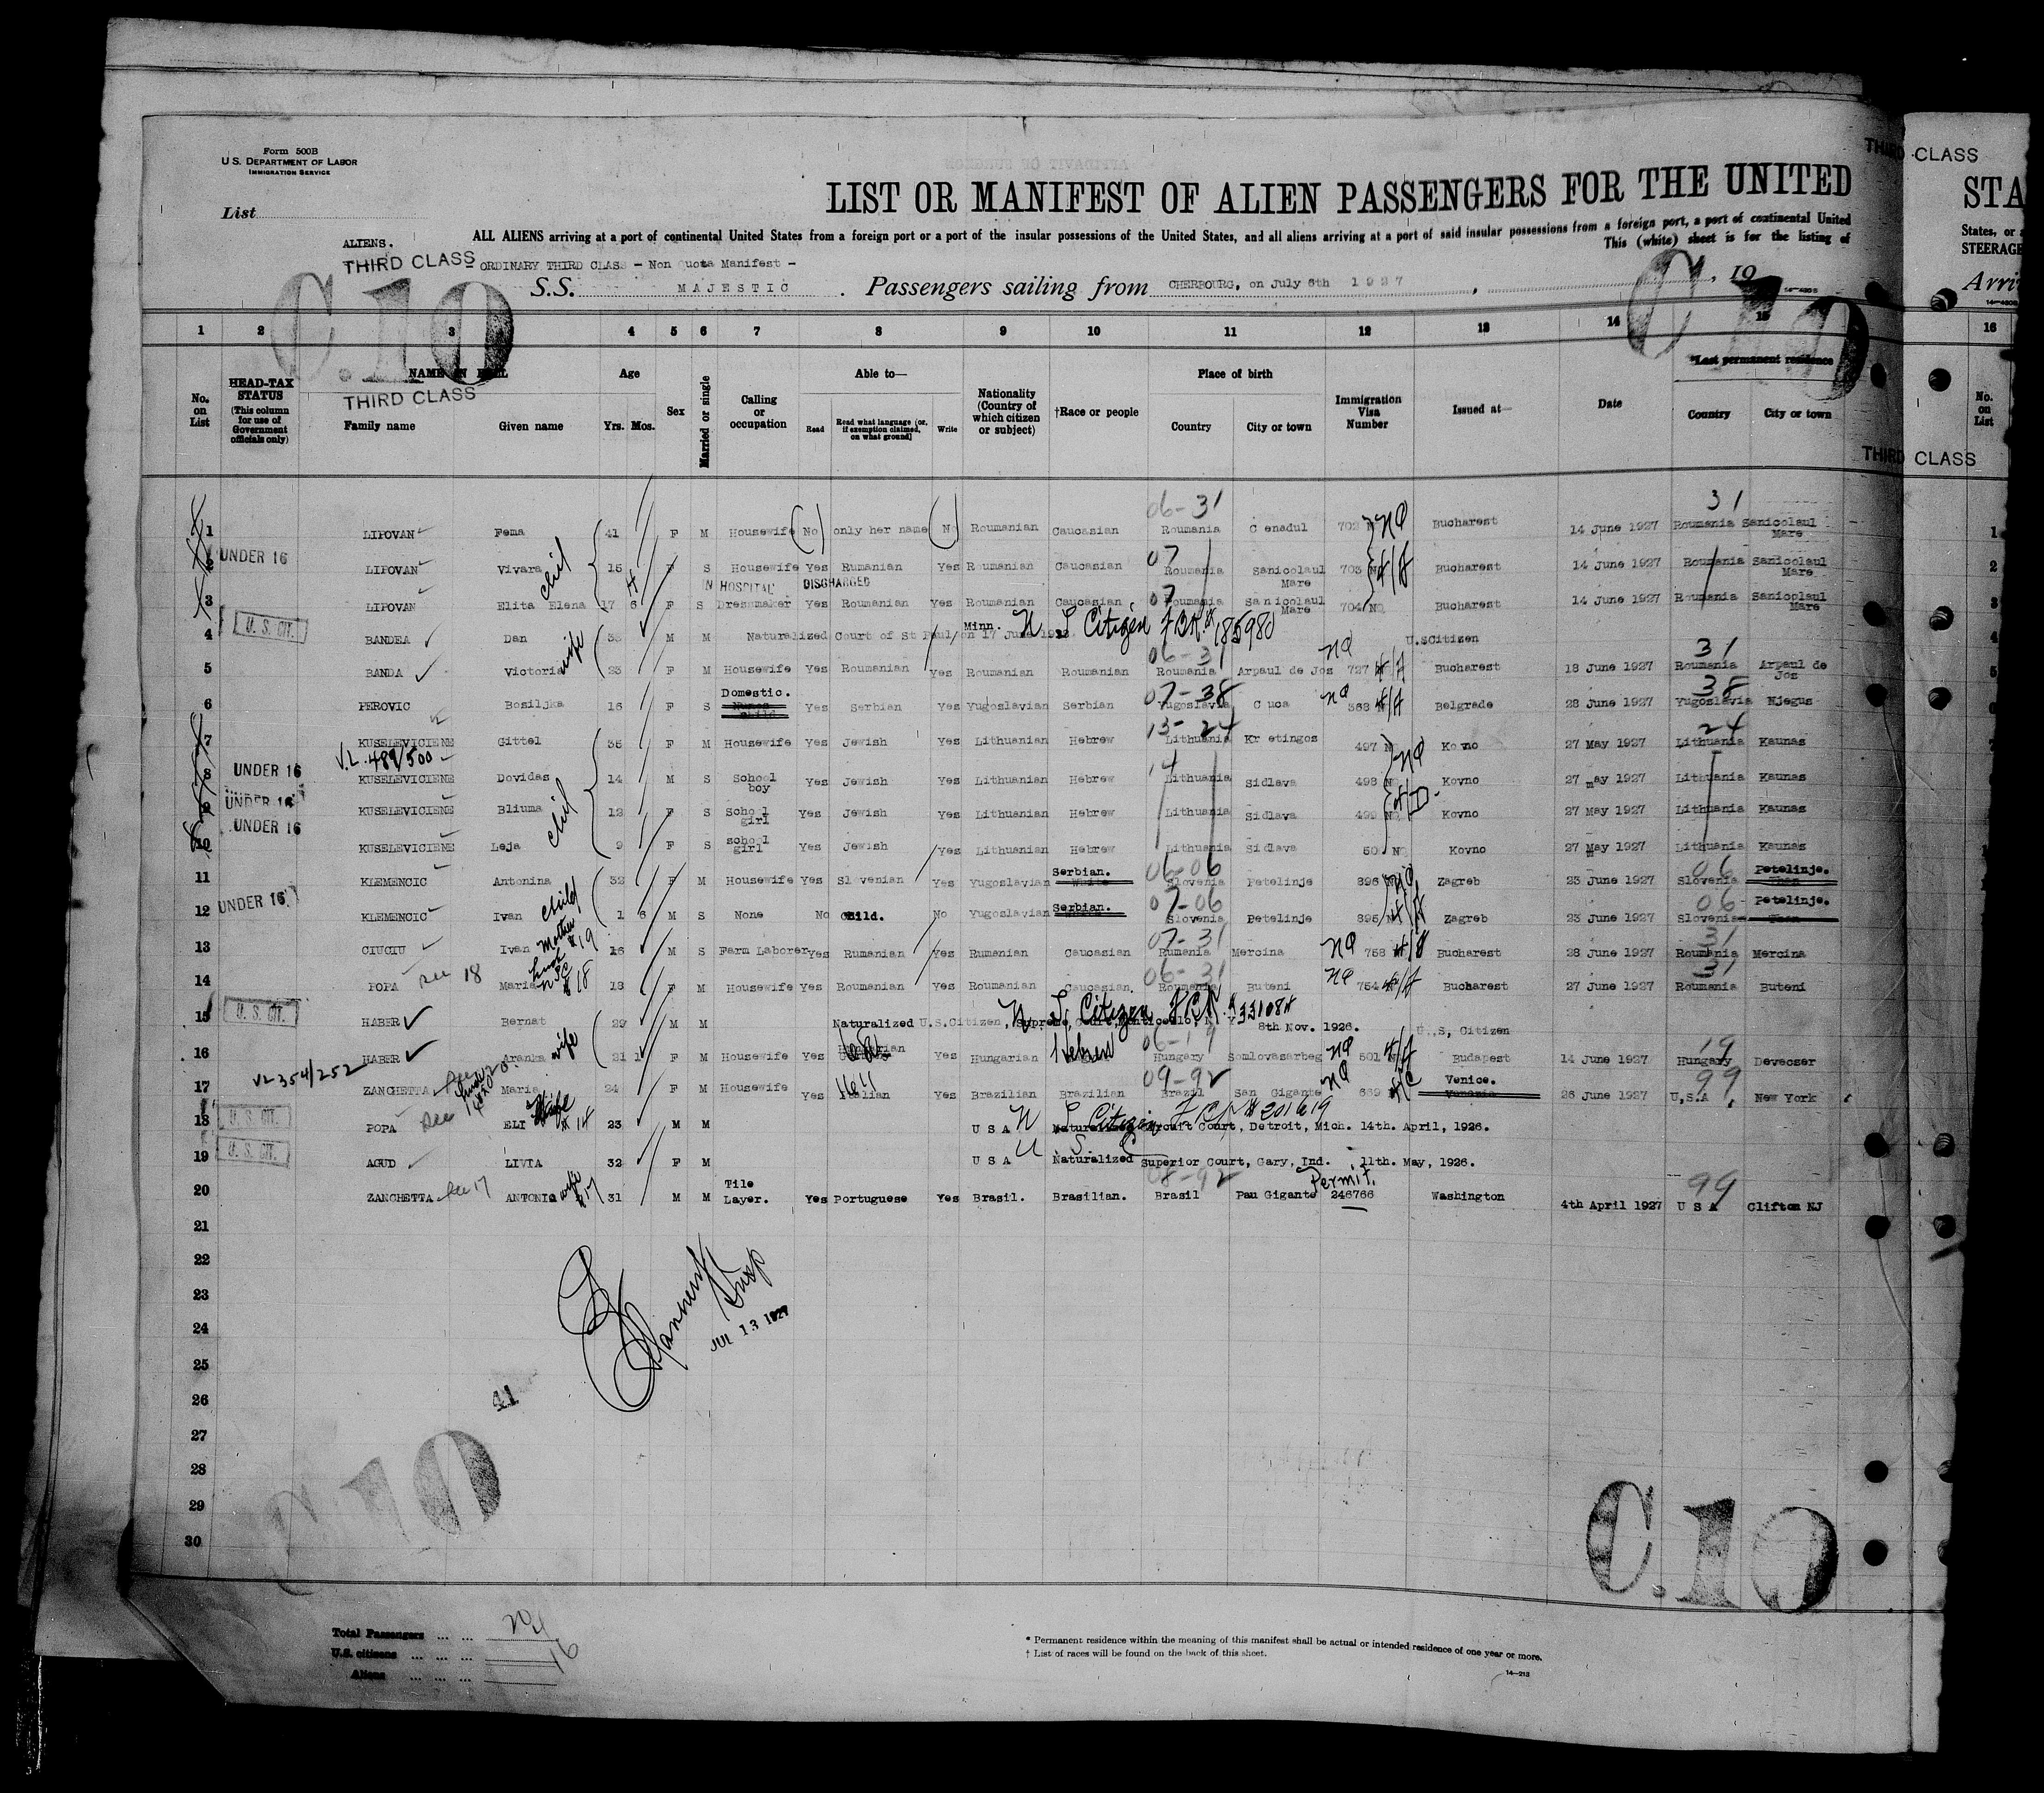 Form 500B
U.S. DEPARTMENT OF LABOR
IMMIGRATION SERVICE
THIRD CLASS
LIST OR MANIFEST OF ALIEN PASSENGERS FOR THE UNITED STA
List
ALL ALIENS arriving at a port of continental United States from a foreign port or a port of the insular possessions of the United States, and all aliens arriving at a port of said insular possessions from a foreign port, a port of continental United States, or a
This (white) sheet is for the listing of STEERAGE
ALIENS.
THIRD CLASS ORDINARY THIRD CLASS - Non Quota Manifest -
S.S. MAJESTIC . Passengers sailing from CHERBOURG, on July 6th 1927 , 19 Arri
C.10 C.10
1 2 3 4 5 6 7 8 9 10 11 12 13 14 15 16
No. on List
HEAD-TAX STATUS (This column for use of Government officials only)
NAME IN FULL
THIRD CLASS
Family name Given name
Age Yrs. Mos.
Sex
Married or single
Calling or occupation
Able to— Read Read what language (or, if exemption claimed, on what ground) Write
Nationality (Country of which citizen or subject)
†Race or people
Place of birth Country City or town
Immigration Visa Number
Issued at—
Date
*Last permanent residence Country City or town
No. on List
THIRD CLASS
06-31 31
1 LIPOVAN Fema 41 F M Housewife (No) only her name (No) Roumanian Caucasian Roumania Cenadul 702 Bucharest 14 June 1927 Roumania Sanicolaul Mare
2 UNDER 16 LIPOVAN Vivara 15 F S Housewife Yes Rumanian Yes Roumanian Caucasian 07 Roumania Sanicolaul Mare 703 Bucharest 14 June 1927 Roumania Sanicolaul Mare
IN HOSPITAL DISCHARGED
3 LIPOVAN Elita Elena 17 6 F S Dressmaker Yes Roumanian Yes Roumanian Caucasian 07 Roumania Sanicolaul Mare 704 NQ Bucharest 14 June 1927 Roumania Sanicolaul Mare
4 U.S. CIT. BANDEA Dan M M Naturalized Court of St Paul, Minn. on 17 June U.S Citizen 185980 U.S Citizen
06-31 31
5 BANDA Victoria wife 23 F M Housewife Yes Roumanian Yes Roumanian Roumanian Roumania Arpaul de Jos 727 Bucharest 18 June 1927 Roumania Arpaul de Jos
Domestic. 07-38 38
6 PEROVIC Bosiljka 16 F S Yes Serbian Yes Yugoslavian Serbian Yugoslavia Cuca 368 Belgrade 28 June 1927 Yugoslavia Njegus
13-24 24
7 KUSELEVICIENE Gittel 35 F M Housewife Yes Jewish Yes Lithuanian Hebrew Lithuania Kretingos 497 Kovno 27 May 1927 Lithuania Kaunas
V.L. 489/500
8 UNDER 16 KUSELEVICIENE Dovidas 14 M S School boy Yes Jewish Yes Lithuanian Hebrew 14 Lithuania Sidlava 498 NQ Kovno 27 may 1927 Lithuania Kaunas
9 UNDER 16 KUSELEVICIENE Bliuma 12 F S School girl Yes Jewish Yes Lithuanian Hebrew Lithuania Sidlava 499 NQ Kovno 27 May 1927 Lithuania Kaunas
10 UNDER 16 KUSELEVICIENE Leja 9 F S school girl Yes Jewish Yes Lithuanian Hebrew Lithuania Sidlava 50 NQ Kovno 27 May 1927 Lithuania Kaunas
11 KLEMENCIC Antonina 32 F M Housewife Yes Slovenian Yes Yugoslavian Serbian. 06-06 Slovenia Petelinje 396 Zagreb 23 June 1927 06 Slovenia Petelinje.
12 UNDER 16 KLEMENCIC Ivan child 1 6 M S None No Child. No Yugoslavian Serbian. 07-06 Slovenia Petelinje 395 Zagreb 23 June 1927 06 Slovenia Petelinje.
07-31 31
13 CIUCIU Ivan Mother # 19 16 M S Farm Laborer Yes Rumanian Yes Rumanian Caucasian Rumania Mercina 758 Bucharest 28 June 1927 Roumania Mercina
06-31 31
14 POPA See 18 Maria 18 F M Housewife Yes Roumanian Yes Roumanian Caucasian Roumania Buteni 754 Bucharest 27 June 1927 Roumania Buteni
15 U.S. CIT. HABER Bernat 29 M M Naturalized U.S.Citizen, Supreme Court, Monticello, N.Y. 8th Nov. 1926. U.S. Citizen
06-19 19
16 HABER Aranka wife 21 F M Housewife Yes Yes Hungarian Hebrew Hungary Somlovasarheg 501 Budapest 14 June 1927 Hungary Devecser
VL 354/252
09-92 99
17 ZANCHETTA Maria 24 F M Housewife Yes Italian Yes Brazilian Brazilian Brazil San Gigante 669 Venice. 26 June 1927 U.S.A New York
18 U.S. CIT. POPA See ELI Wife # 14 23 M M USA Naturalized Circuit Court, Detroit, Mich. 14th. April, 1926.
19 U.S. CIT. AGUD LIVIA 32 F M USA Naturalized Superior Court, Gary, Ind. 11th. May, 1926.
08-92 Permit. 99
20 ZANCHETTA See 17 ANTONIO wife #17 31 M M Tile Layer. Yes Portuguese Yes Brasil. Brasilian. Brasil Pau Gigante 246766 Washington 4th April 1927 USA Clifton NJ
21
22
23
24
25
26
27
28
29
30
JUL 13 1927
41
C.10 C.10
Total Passengers ... ... 20
U.S. citizens ... ... ...
Aliens ... ... ... 16
* Permanent residence within the meaning of this manifest shall be actual or intended residence of one year or more.
† List of races will be found on the back of this sheet.
14—213